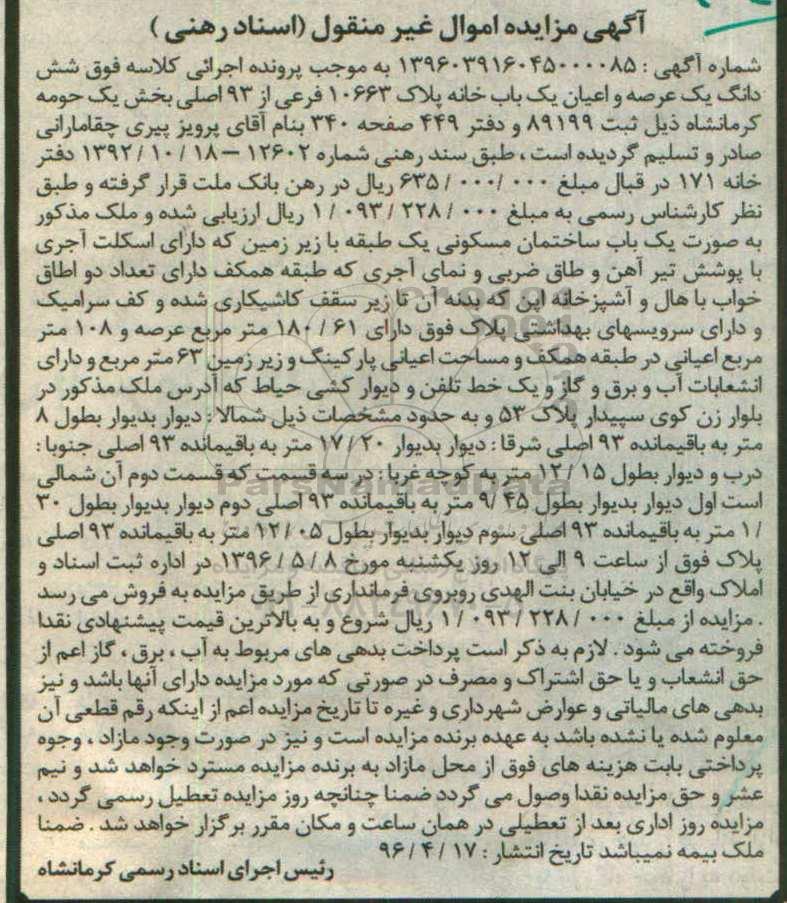 آگهی مزایده اموال غیر منقول (اسناد رهنی)
شماره آگهی : ۱۳۹۶۰۳۹۱۶۰۴۵۰۰۰۰۸۵ به موجب پرونده اجرائی کلاسه فوق شش
دانگ یک عرصه و اعیان یک باب خانه پلاک ۱۰۶۶۳ فرعی از ۹۳ اصلی بخش یک حومه
کرمانشاه ذیل ثبت ۸۹۱۹۹ و دفتر ۴۴۹ صفحه ۳۴۰ بنام آقای پرویز پیری چقامارانی
صادر و تسلیم گردیده است ، طبق سند رهنی شماره ۱۲۶۰۲ – ۱۳۹۲/۱۰/۱۸ دفتر
خانه ۱۷۱ در قبال مبلغ ۶۳۵/۰۰۰/۰۰۰ ریال در رهن بانک ملت قرار گرفته و طبق
نظر کارشناس رسمی به مبلغ ۱/۰۹۳/۲۲۸/۰۰۰ ریال ارزیابی شده و ملک مذکور
به صورت یک باب ساختمان مسکونی یک طبقه با زیر زمین که دارای اسکلت آجری
با پوشش تیر آهن و طاق ضربی و نمای آجری که طبقه همکف دارای تعداد دو اطاق
خواب با هال و آشپزخانه اپن که بدنه آن تا زیر سقف کاشیکاری شده و کف سرامیک
و دارای سرویسهای بهداشتی پلاک فوق دارای ۱۸۰/۶۱ متر مربع عرصه و ۱۰۸ متر
مربع اعیانی در طبقه همکف و مساحت اعیانی پارکینگ و زیر زمین ۶۳ متر مربع و دارای
انشعابات آب و برق و گاز و یک خط تلفن و دیوار کشی حیاط که آدرس ملک مذکور در
بلوار زن کوی سپیدار پلاک ۵۳ و به حدود مشخصات ذیل شمالا : دیوار بدیوار بطول ۸
متر به باقیمانده ۹۳ اصلی شرقا : دیوار بدیوار ۱۷/۲۰ متر به باقیمانده ۹۳ اصلی جنوبا :
درب و دیوار بطول ۱۲/۱۵ متر به کوچه غربا : در سه قسمت که قسمت دوم آن شمالی
است اول دیوار بدیوار بطول ۹/۴۵ متر به باقیمانده ۹۳ اصلی دوم دیوار بدیوار بطول ۳۰
/۱ متر به باقیمانده ۹۳ اصلی سوم دیوار بدیوار بطول ۱۲/۰۵ متر به باقیمانده ۹۳ اصلی
پلاک فوق از ساعت ۹ الی ۱۲ روز یکشنبه مورخ ۱۳۹۶/۵/۸ در اداره ثبت اسناد و
املاک واقع در خیابان بنت الهدی روبروی فرمانداری از طریق مزایده به فروش می رسد
. مزایده از مبلغ ۱/۰۹۳/۲۲۸/۰۰۰ ریال شروع و به بالاترین قیمت پیشنهادی نقدا
فروخته می شود . لازم به ذکر است پرداخت بدهی های مربوط به آب ، برق ، گاز اعم از
حق انشعاب و یا حق اشتراک و مصرف در صورتی که مورد مزایده دارای آنها باشد و نیز
بدهی های مالیاتی و عوارض شهرداری و غیره تا تاریخ مزایده اعم از اینکه رقم قطعی آن
معلوم شده یا نشده باشد به عهده برنده مزایده است و نیز در صورت وجود مازاد ، وجوه
پرداختی بابت هزینه های فوق از محل مازاد به برنده مزایده مسترد خواهد شد و نیم
عشر و حق مزایده نقدا وصول می گردد ضمنا چنانچه روز مزایده تعطیل رسمی گردد ،
مزایده روز اداری بعد از تعطیلی در همان ساعت و مکان مقرر برگزار خواهد شد . ضمنا
ملک بیمه نمیباشد تاریخ انتشار : ۹۶/۴/۱۷
رئیس اجرای اسناد رسمی کرمانشاه
ParsNamadData